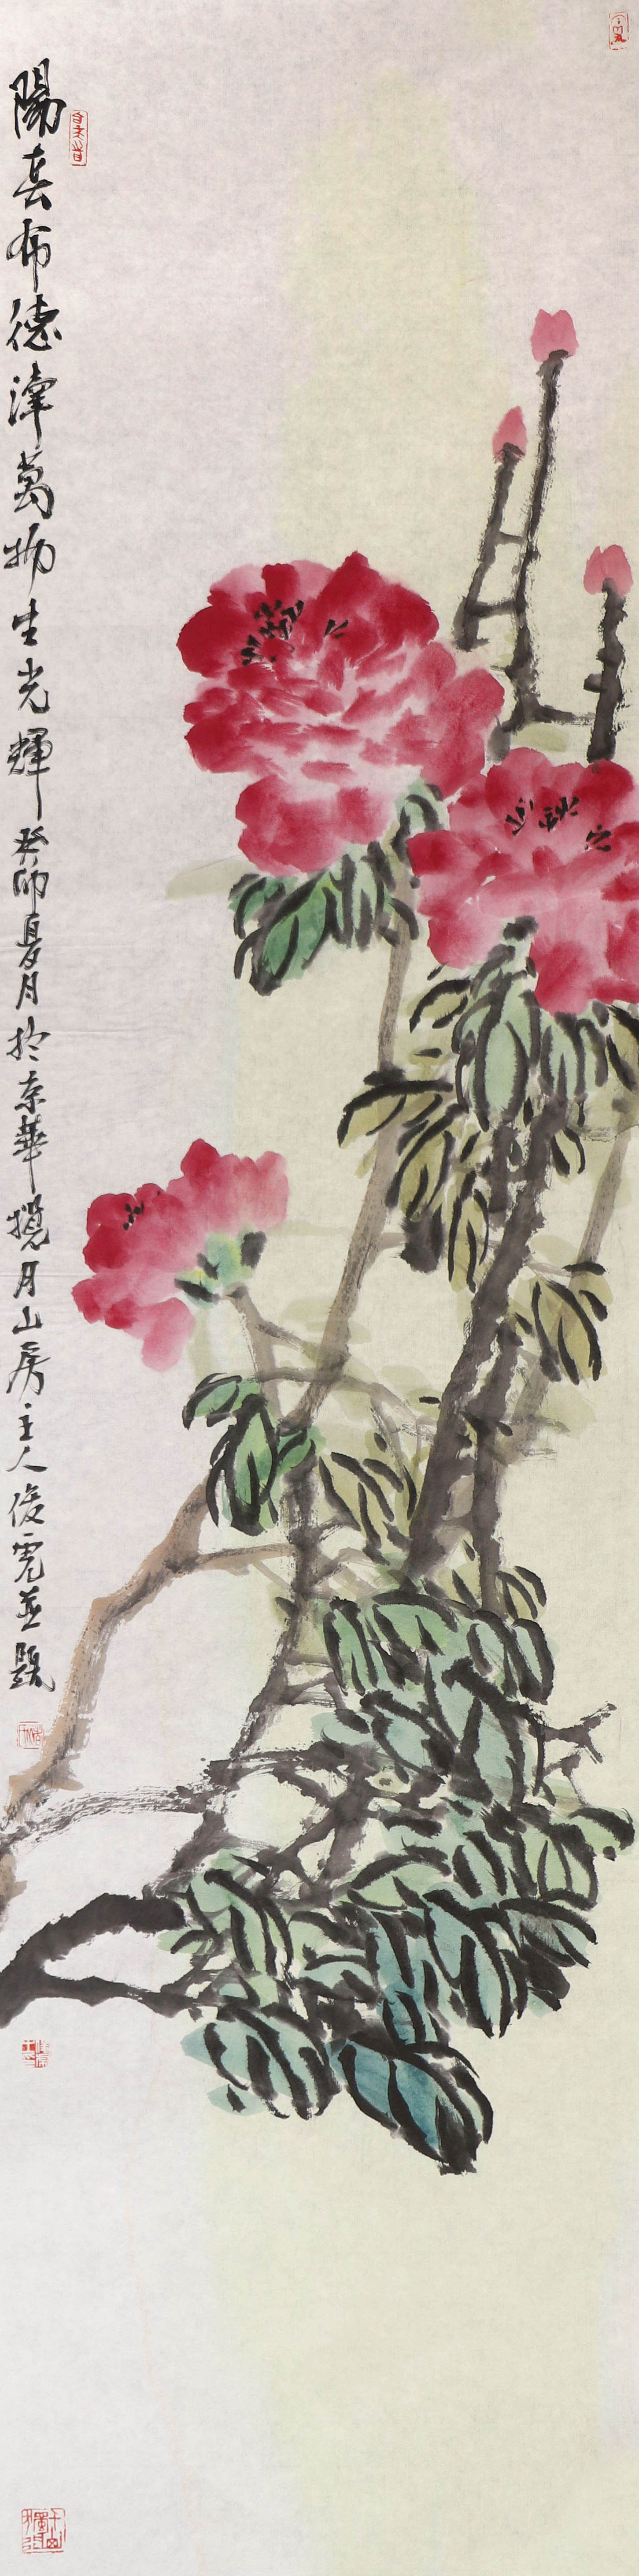 陽春布德澤萬物生光輝癸卯夏月於京華攬月山房主人俊霓並題